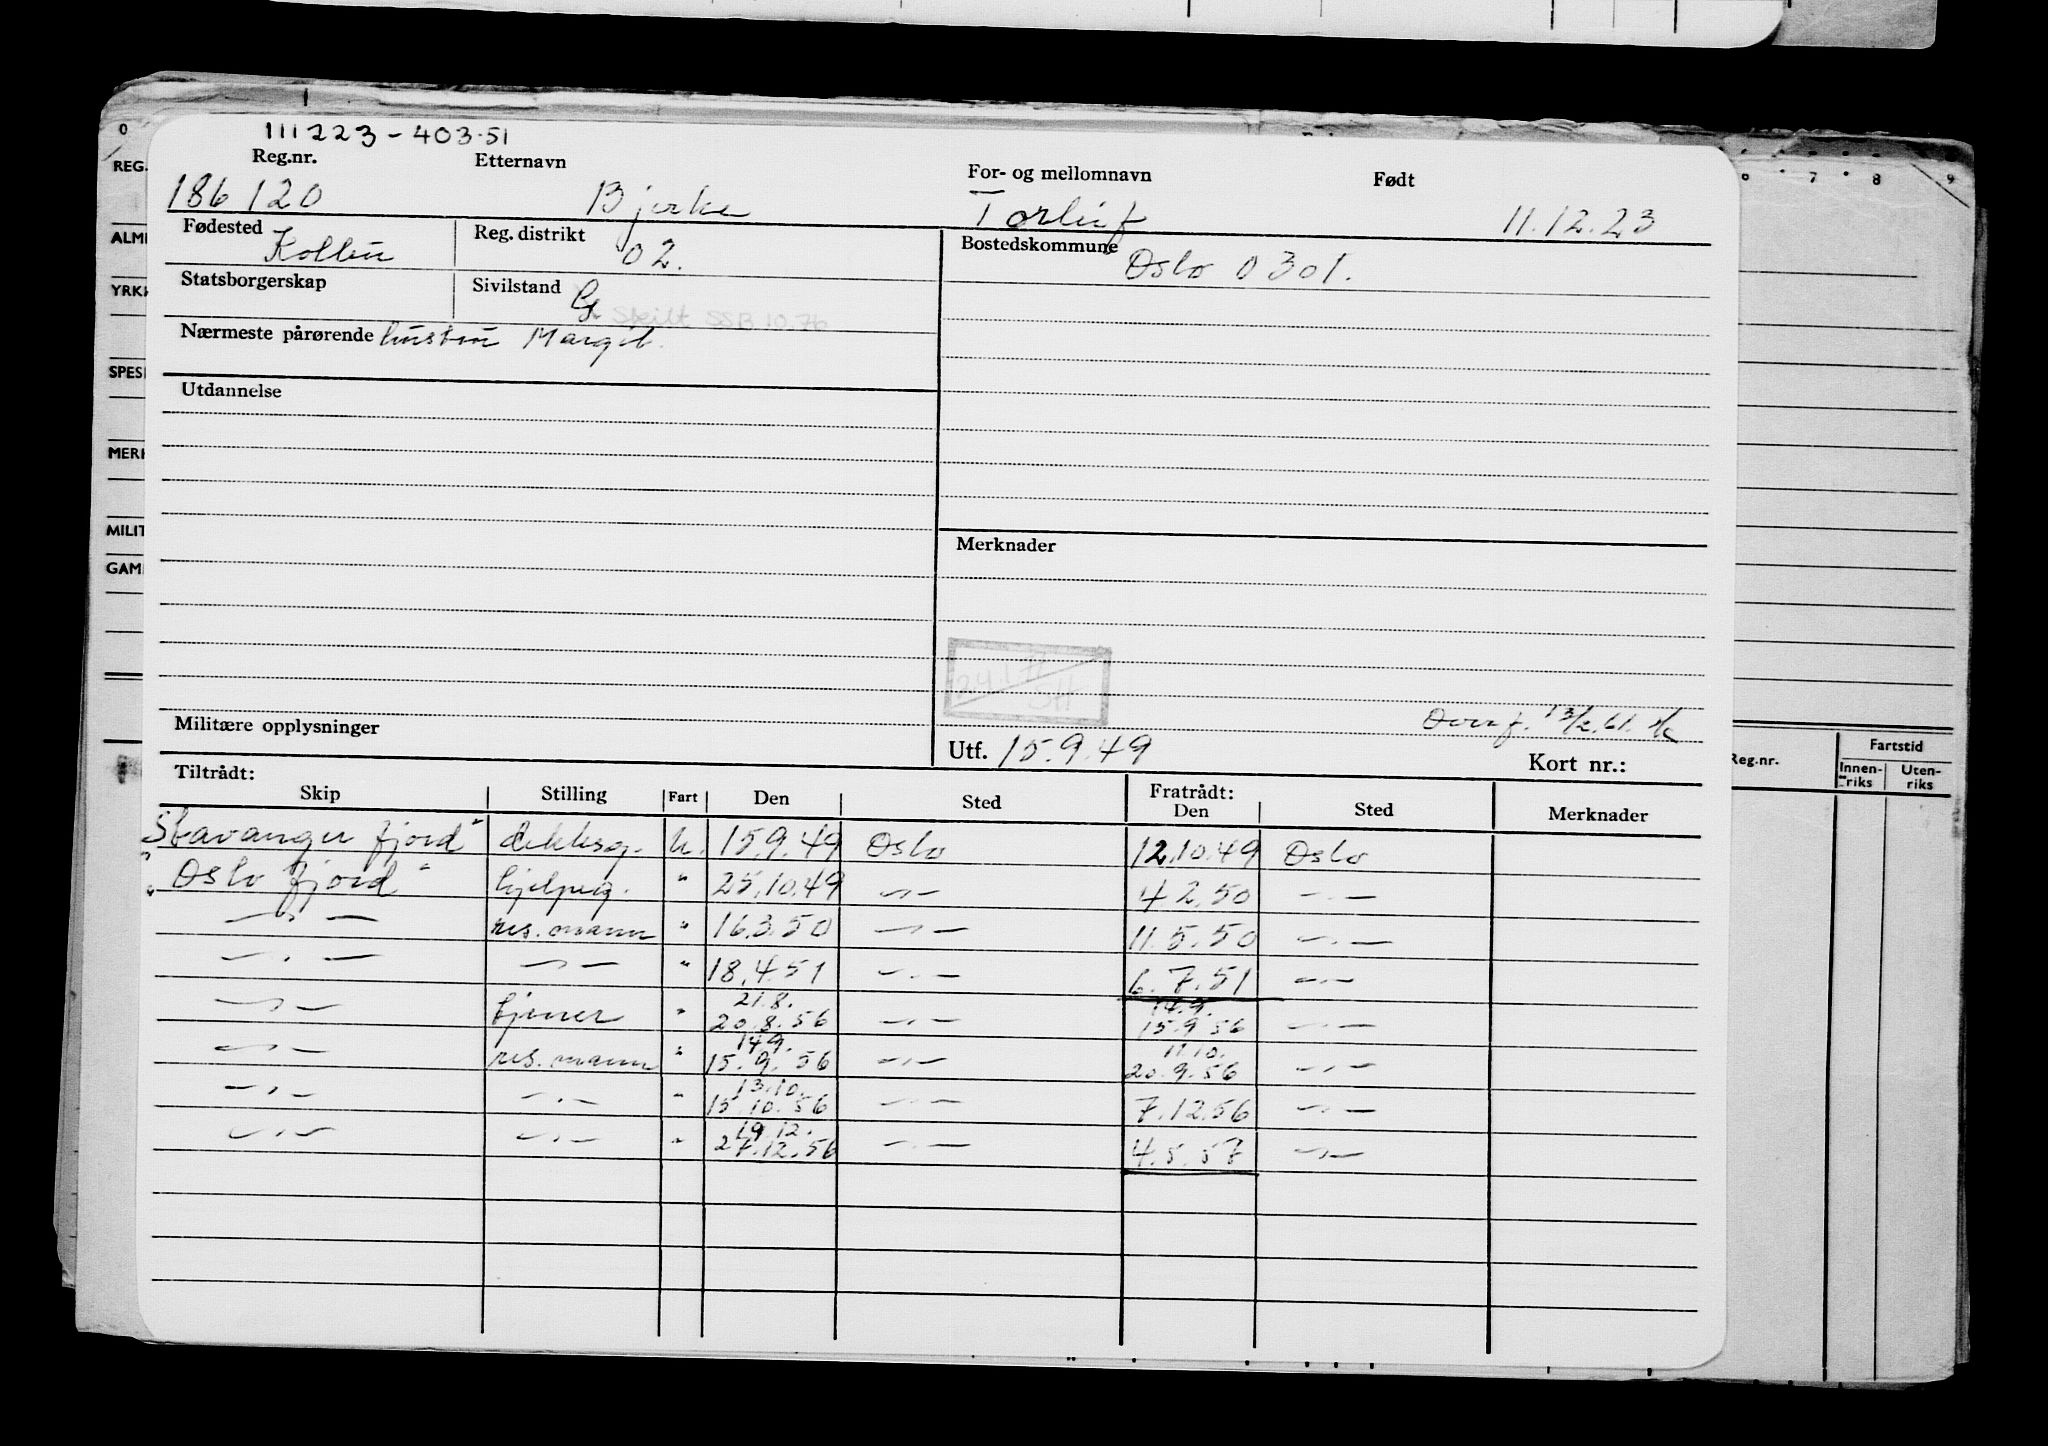 111223-403-51
Reg.nr. Etternavn For- og mellomnavn Født
186 120 Bjerke Torleif 11.12.23
Fødested Kolbu Reg. distrikt 02. Bostedskommune Oslo 0301.
Statsborgerskap Sivilstand G. Skilt SSB 10.76
Nærmeste pårørende hustru Margit.
Utdannelse
Merknader
24.1
SH
Militære opplysninger
Overf. 13/2.61.
Utf. 15.9.49 Kort nr.:
Tiltrådt: Fratrådt:
Skip Stilling Fart Den Sted Den Sted Merknader
"Stavangerfjord" dekksg. u. 15.9.49 Oslo 12.10.49 Oslo
"Oslofjord" hjelpeg. " 25.10.49 —"— 4.2.50 —"—
—"— res.mann " 16.3.50 —"— 11.5.50 —"—
—"— —"— " 18.4.51 —"— 6.7.51 —"—
21.8. 14.9.
—"— tjener " 20.8.56 —"— 15.9.56 —"—
14.9. 11.10.
—"— res.mann " 15.9.56 —"— 20.9.56 —"—
13.10.
—"— —"— " 15.10.56 —"— 7.12.56 —"—
19.12.
—"— —"— " 27.12.56 —"— 4.5.57 —"—
0 6 7 8 9
REG.
ALM
YRK
SPES
MER
MILIT
GAM
Reg.nr.
Fartstid
Innen-
riks
Uten-
riks